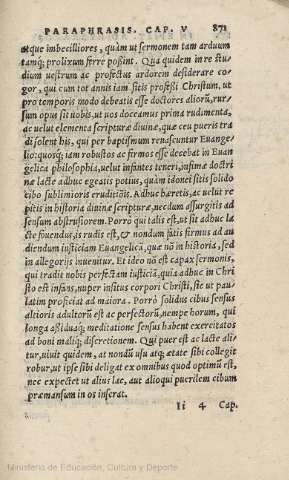 PARAPHRASIS. CAP. V 871
atque imbecilliores, quàm ut sermonem tam arduum
tamq́; prolixum ferre poßint. Qua quidem in re stu
dium uestrum ac profectus ardorem desiderare co
gor, qui cum tot annis iam sitis profeßi Christum, ut
pro temporis modo debeatis esse doctores aliorũ, rur-
sum opus sit uobis, ut uos doceamus prima rudimenta,
ac uelut elementa scripturæ diuinæ, quæ ceu pueris tra
di solent his, qui per baptismum renascuntur Euange-
lio: quosq́; iam robustos ac firmos esse decebat in Euan
gelica philosophia, uelut infantes teneri, infimæ doctri
næ lacte adhuc egeatis potius, quàm idonei sitis solido
cibo sublimioris eruditiõis. Adhuc hæretis, ac uelut re
pitis in historia diuinæ scripturæ, necdum assurgitis ad
sensum abstrusiorem. Porrò qui talis est, ut sit adhuc la
cte fouendus, is rudis est, & nondum satis firmus ad au
diendum iusticiam Euangelicã, quæ nõ in historia, sed
in allegorijs inuenitur. Et ideo nõ est capax sermonis,
qui tradit nobis perfectam iusticiã, quia adhuc in Chri
sto est infans, nuper insitus corpori Christi, sic ut pau-
latim proficiat ad maiora. Porrò solidus cibus sensus
altioris adultorũ est ac perfectorũ, nempe horum, qui
longa aßiduaq́; meditatione sensus habent exercitatos
ad boni maliq́; discretionem. Qui puer est ac lacte ali-
tur, uiuit quidem, at nondũ usu atq; ætate sibi collegit
robur, ut ipse sibi deligat ex omnibus quod optimũ est,
nec expectet ut alius lac, aut alioqui puerilem cibum
præmansum in os inserat.
Ii 4 Cap.
Ministerio de Educación, Cultura y Deporte